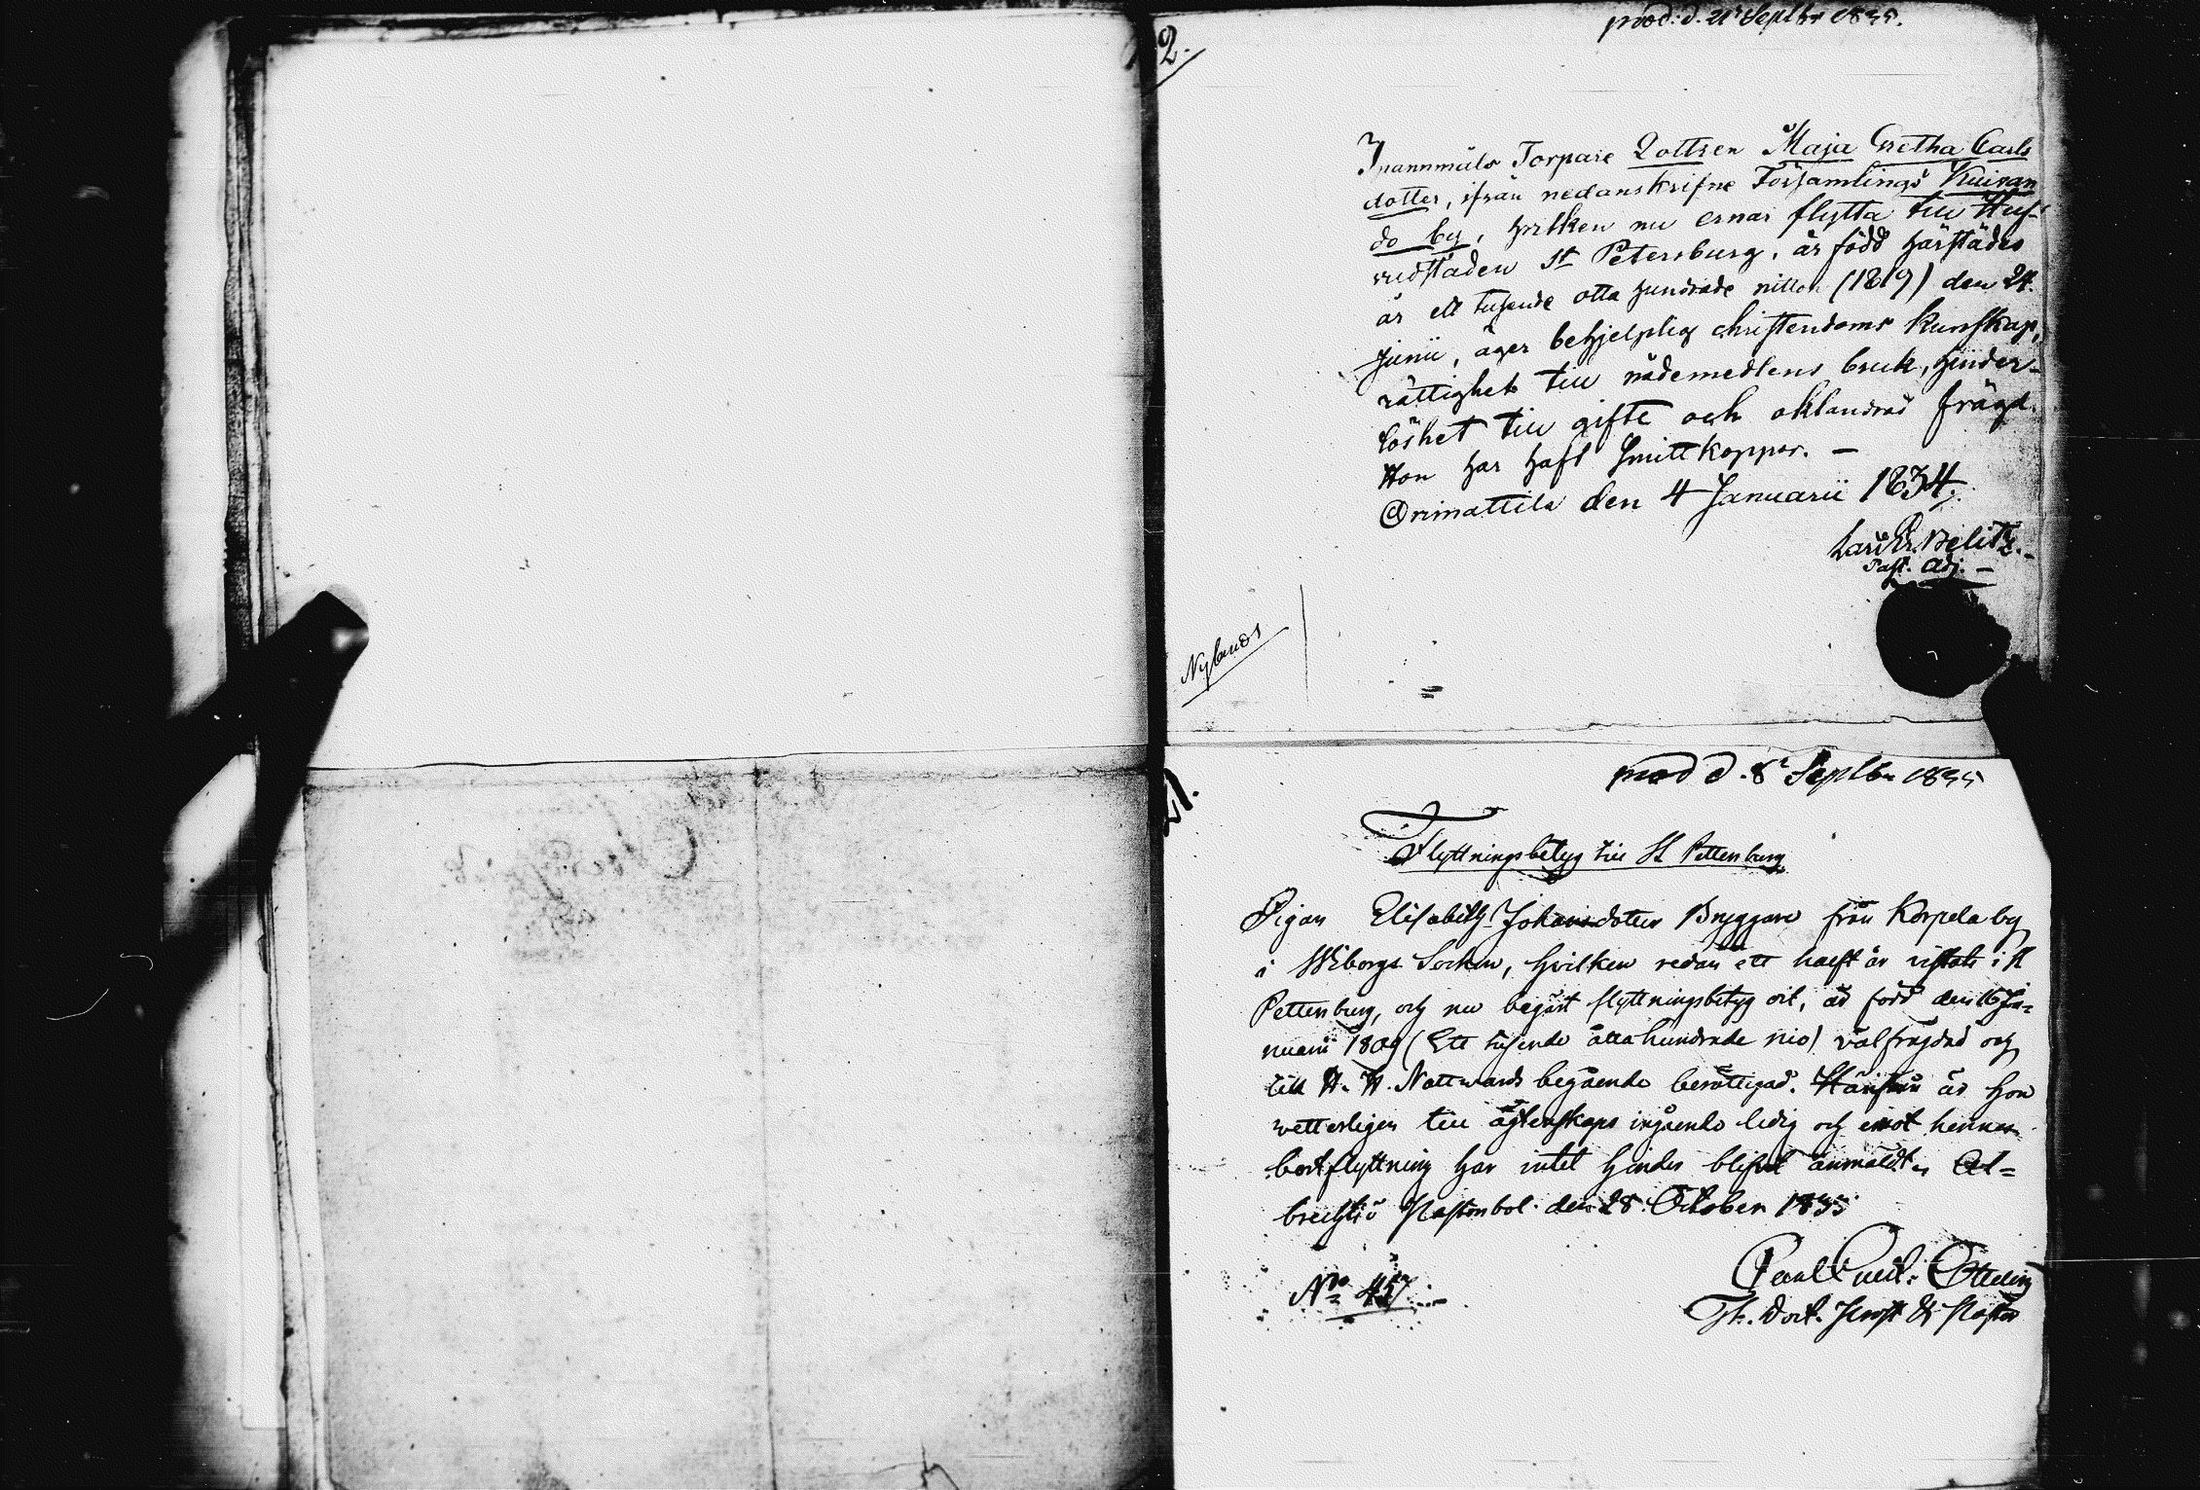 2.
prod: d. 21 Septbr 1835.
Innanmäls Torpare Dottren Maja Gretha Carls
dotter, ifrån nedanskrifne Församlings Kuivan
do by, hvilken nu ernar flytta till Huf-
vudstaden St Petersburg, är född härstädes
år ett tusende otta hundrade nitton (1819) den 24.
Junii, äger behjelplig christendoms kunskap,
rättighet till nådemedlens bruk, hinder-
löshet till gifte och oklandrad frägd.
Hon har haft Smittkoppor. —
Orimattila den 4 Januarii 1834.
Past. Adj. —
Nylands
21.
prod d. 8 Septbr 1835
Flyttningsbetyg till St Pettersburg
Pigan Elisabeth Johansdotter Bryggare från Korpela by
i Wiborgs Socken, hvilken redan ett halft år vistats i St
Pettersburg, och nu begärt flyttningsbetyg dit, är född den 16 Ja=
nuarii 1809 (Ett tusende åtta hundrade nio) välfrägdad och
till H. H. Nattvards begående berättigad. Härifrån är hon
vetterligen till äktenskaps ingående ledig och emot hennes
bortflyttning har intet hinder blifvit anmäldt.
den 28 October 1833
No 457